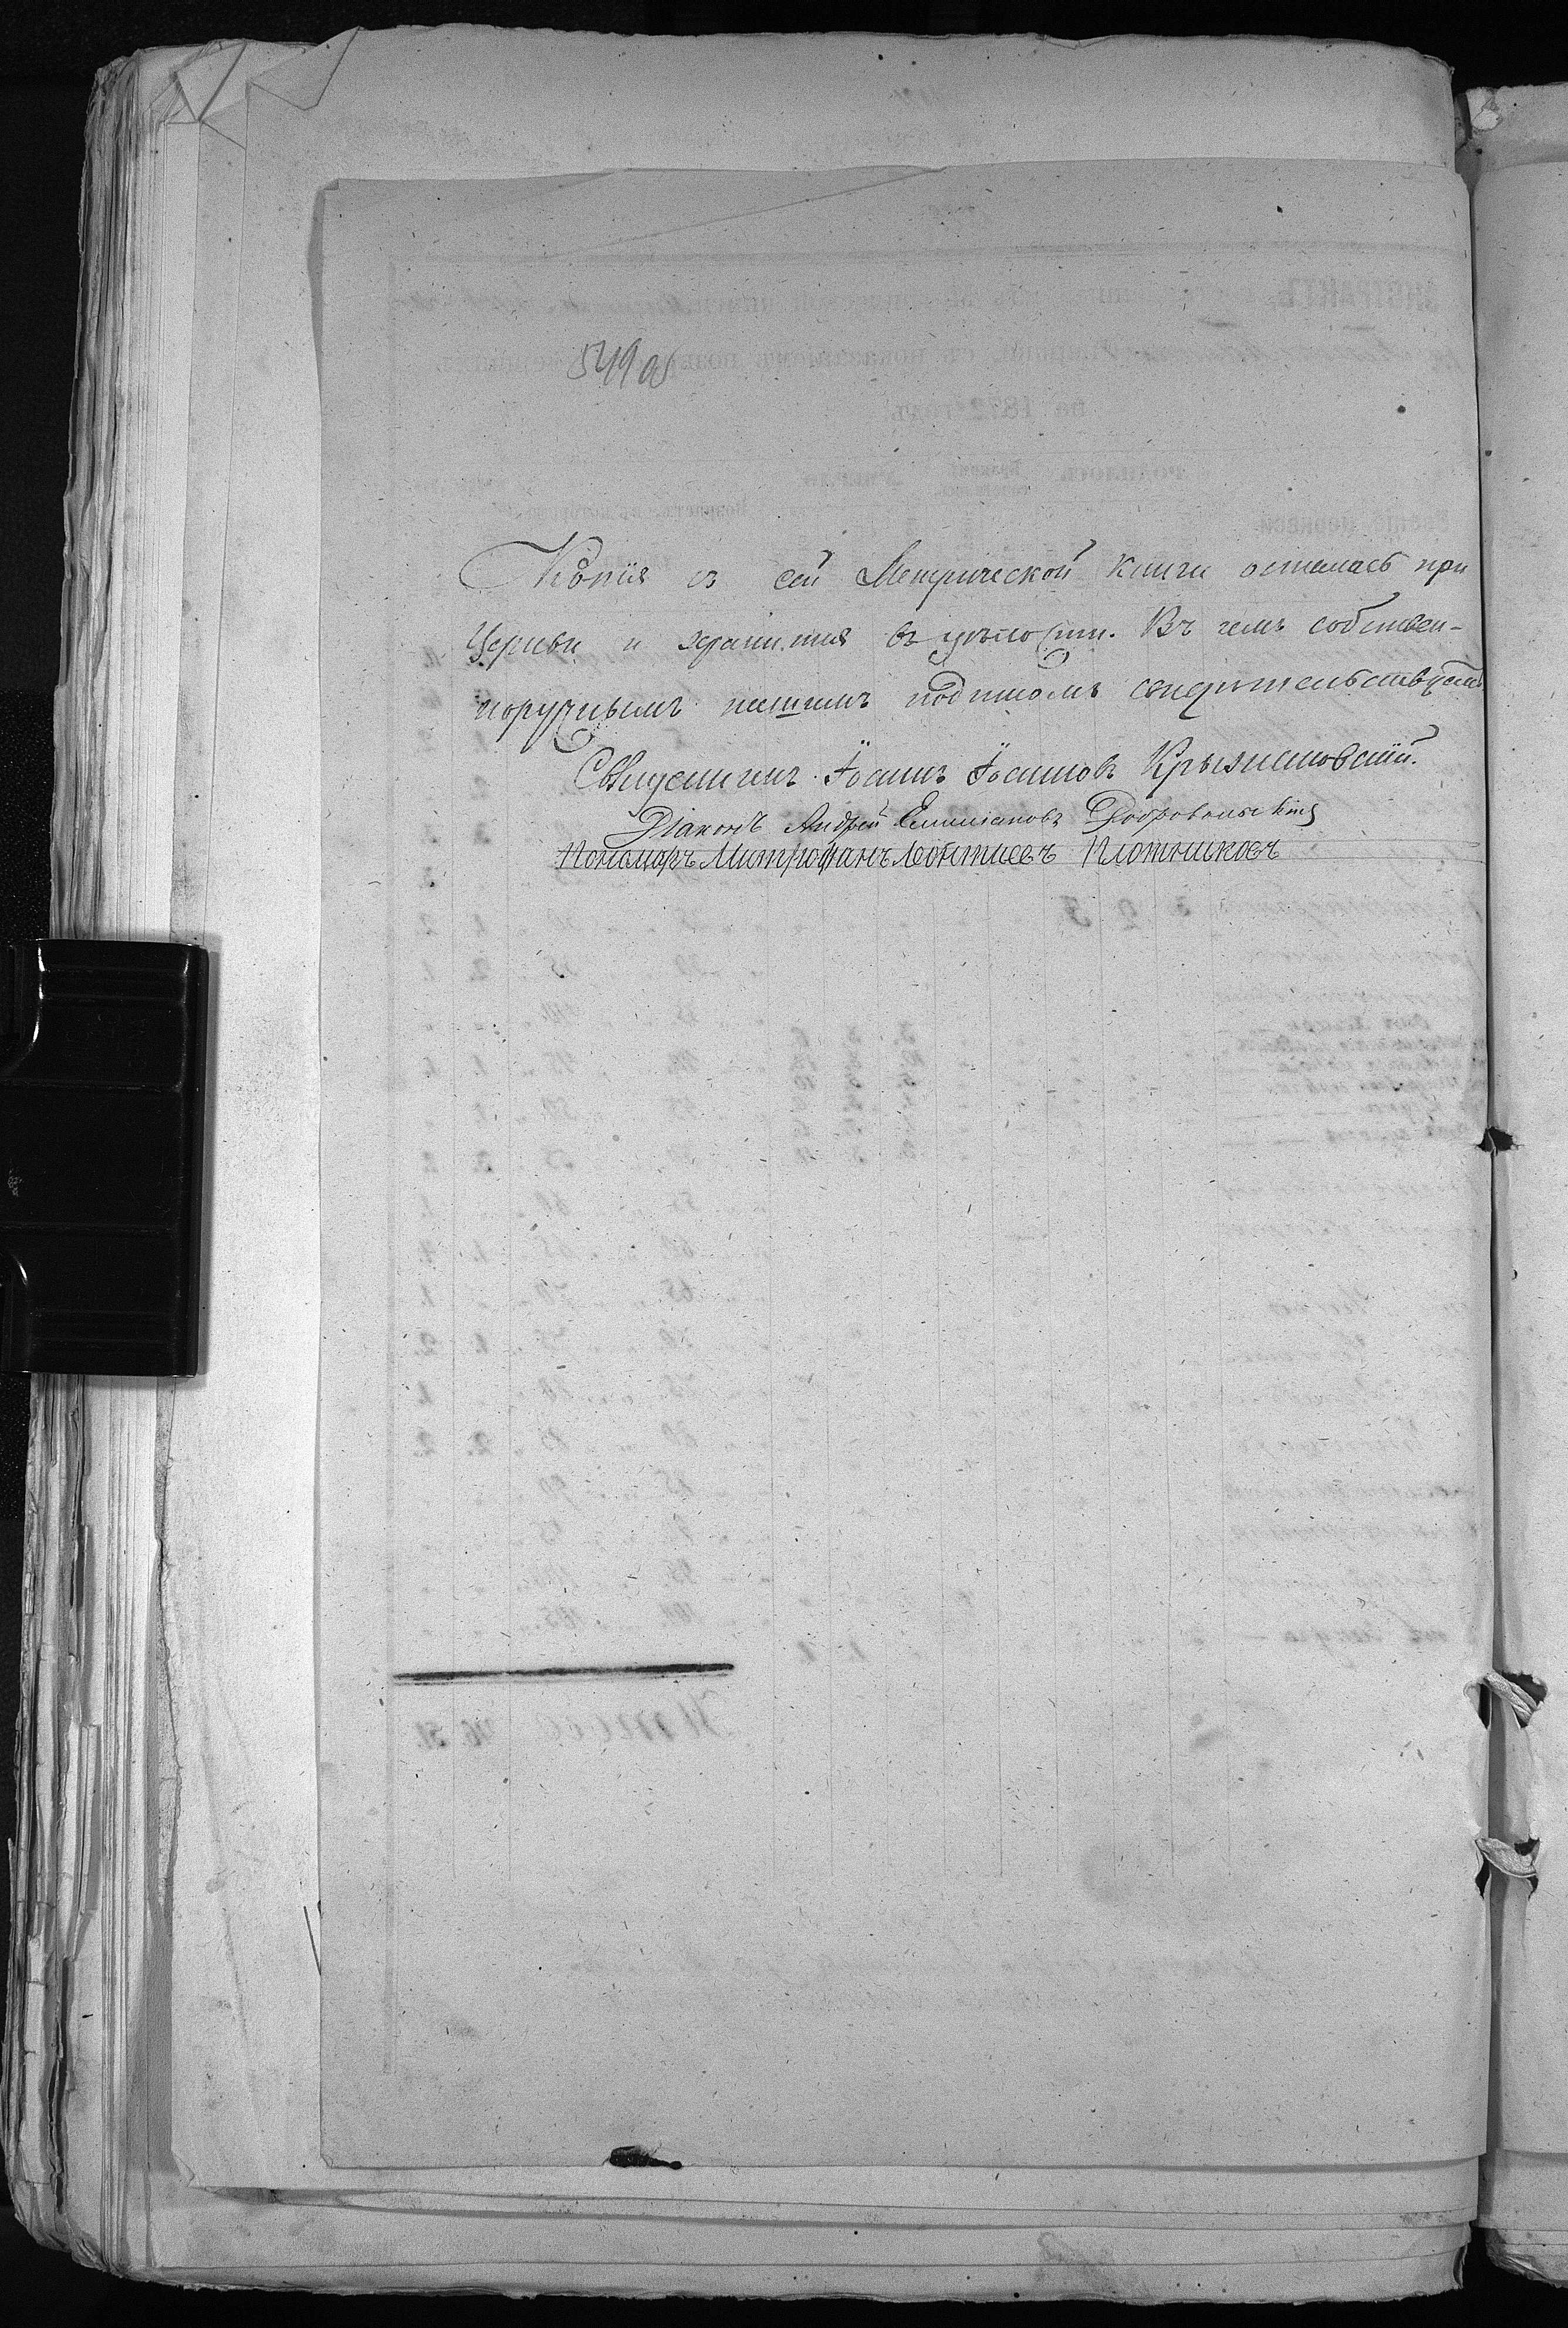 549 об
Копія съ сей Метрической книги осталась при
Церкви и хранится въ цѣлости. Въ чемъ собствен-
норучнымъ нашимъ подписомъ свидѣтельствуемъ
Священникъ Іоаннъ Іоанновъ Крыжановскій.
Діаконъ Андрей Емиліановъ Добровольскій
Пономарь Митрофанъ Леонтиевъ Плотниковъ